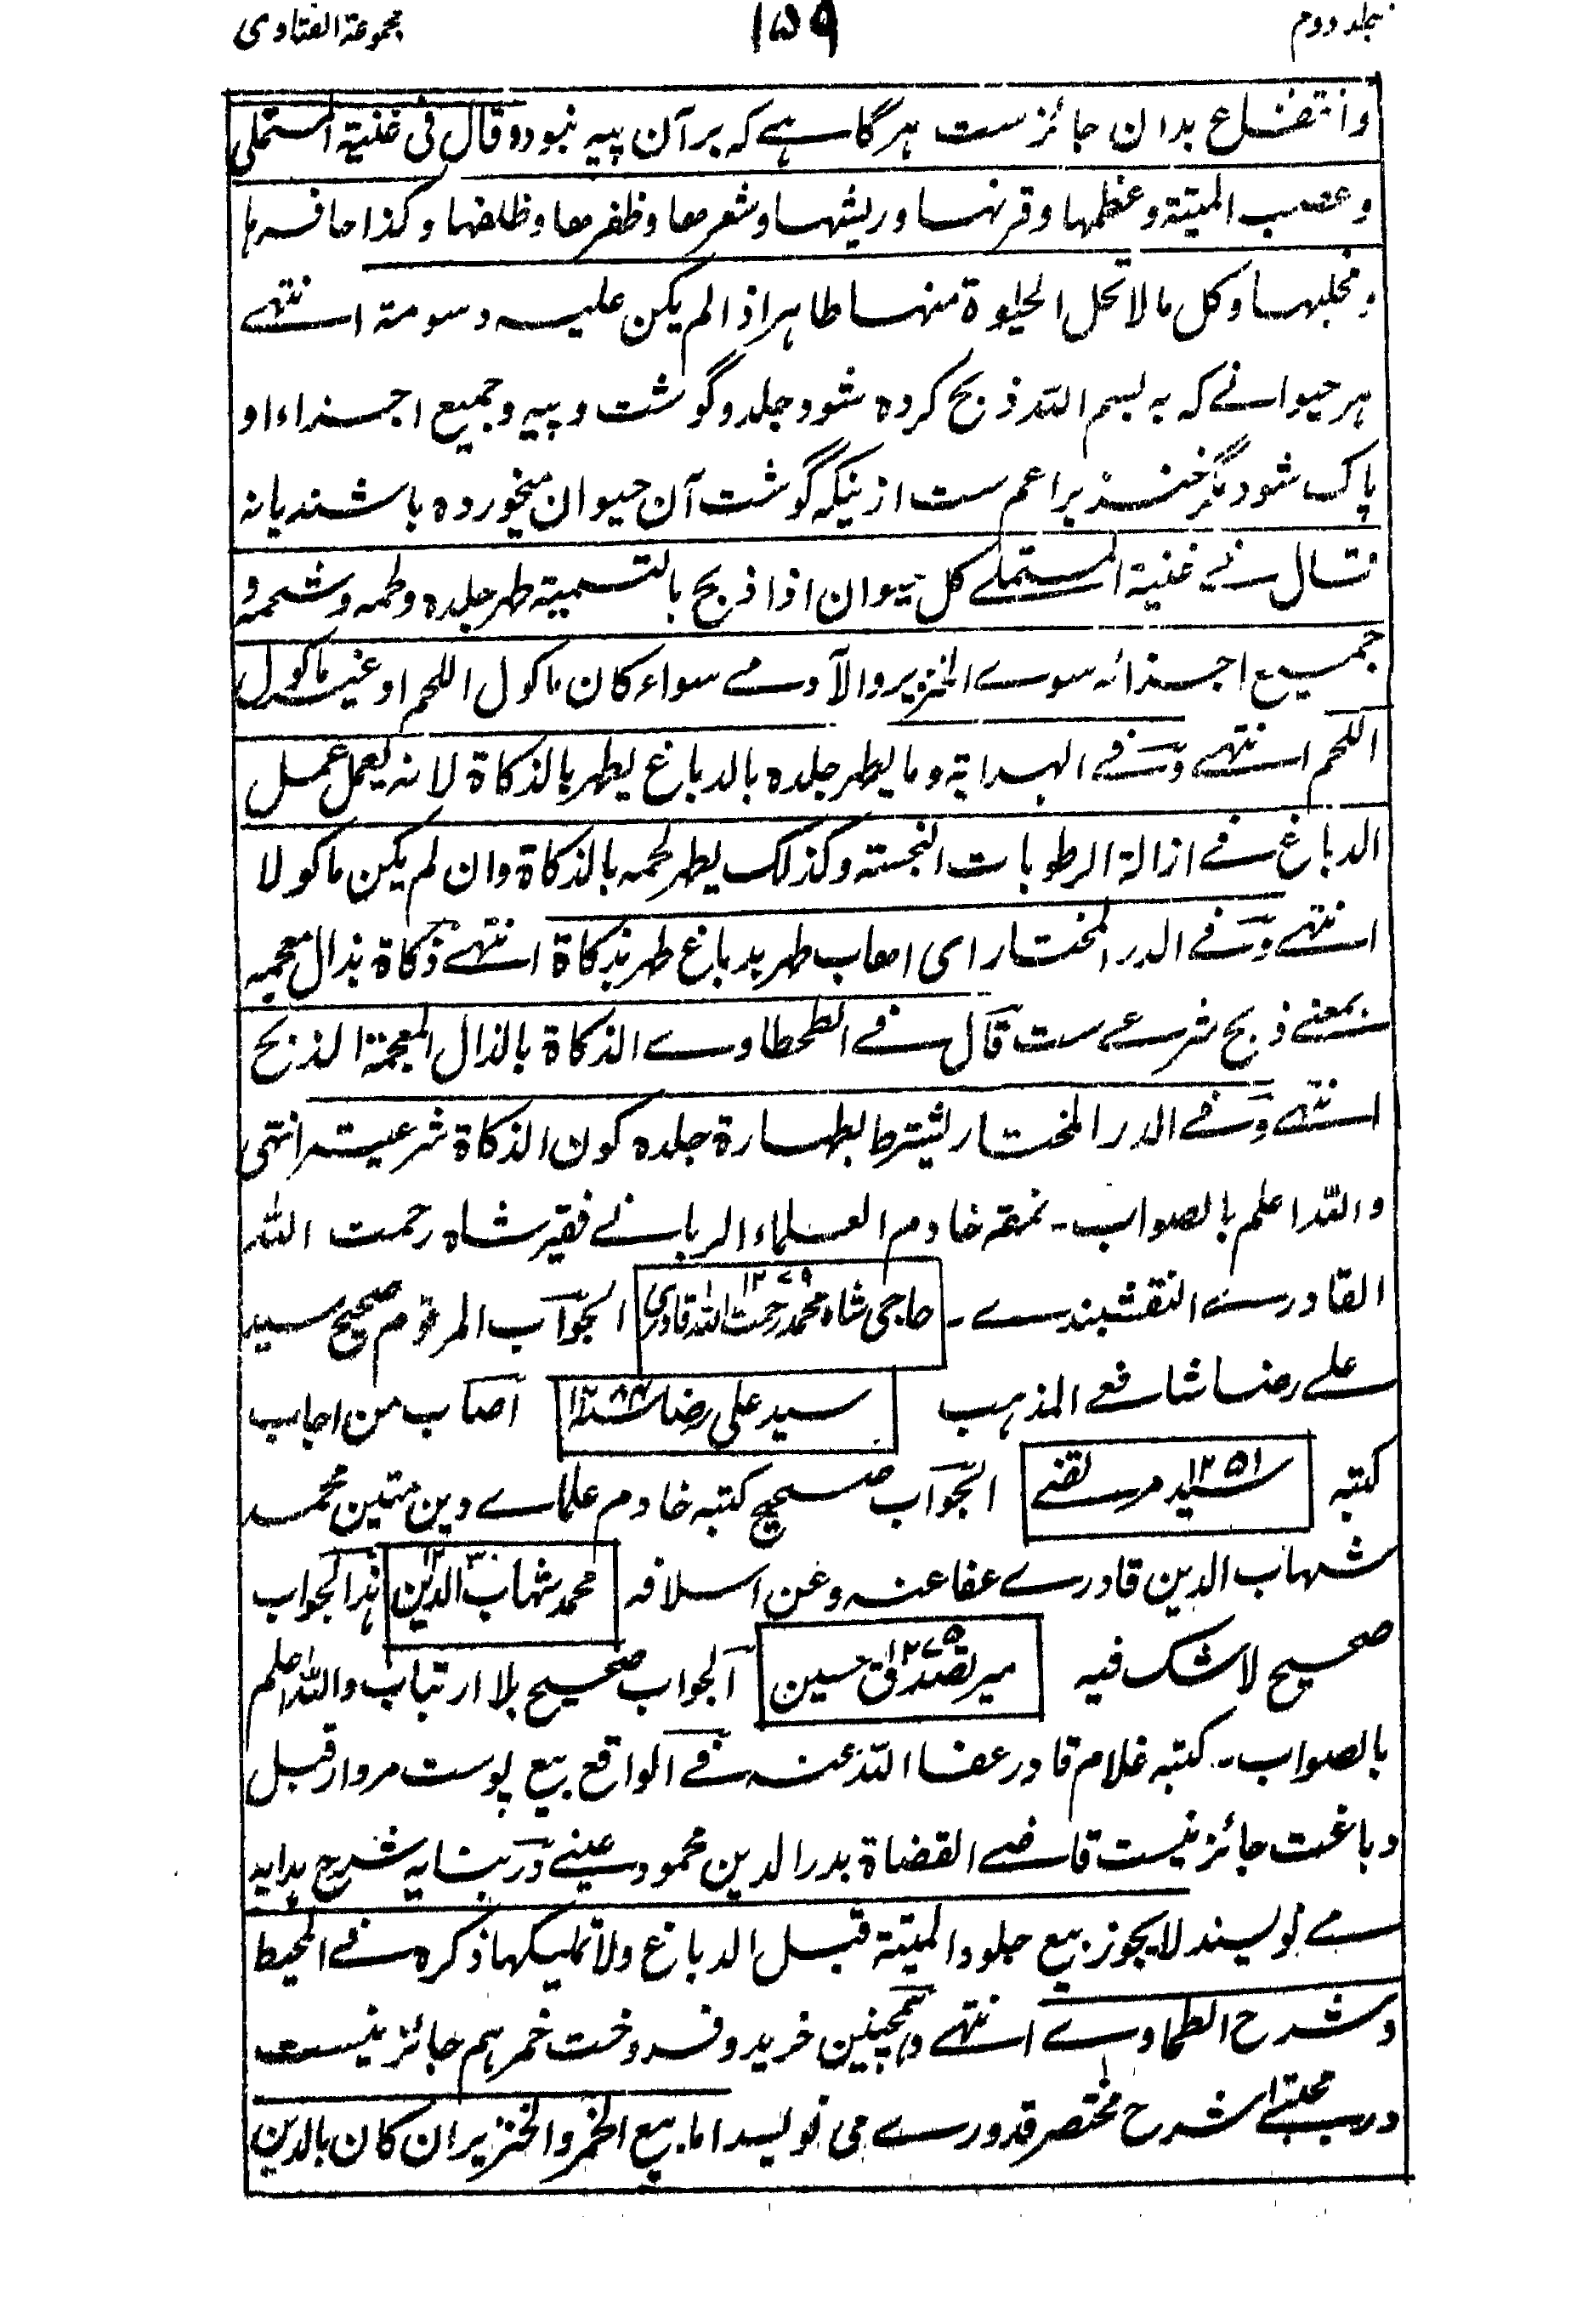 جلد دوم
۱۵۹
مجموعة الفتاوی
وانتفاع بدان جائز ست ہرگاہے کہ برآن پیہ نبود و قال فی غنیة المستملی
وعصب المیتة وعظمها وقرنها وریشها وشعرها وظفرها وظلفها وکذا حافرها
ومخلبها وکل ما لا تحل الحیٰوة منها طاهر اذا لم یکن علیه دسومة انتهے
ہر حیوانے کہ بہ بسم اللہ ذبح کردہ شود جلد و گوشت و پیہ و جمیع اجزاء او
پاک شود مگر خنزیر اعم ست ازینکہ گوشت آن حیوان میخوردہ باشند یا نہ
قال فے غنیة المستملے کل حیوان اذا ذبح بالتسمیة طهر جلده ولحمه وشحمه و
جمیع اجزائه سوے الخنزیر والآدمے سواء کان ماکول اللحم او غیر ماکول
اللحم انتهے وفے الهدایة وما یطهر جلده بالدباغ یطهر بالذکاة لانه یعمل عمل
الدباغ فے ازالة الرطوبات النجسة وکذلک یطهر لحمه بالذکاة وان لم یکن ماکولا
انتهے وفے الدر المختار ای اهاب طهر بدباغ طهر بذکاة انتهے ذکاة بذال معجمہ
بمعنے ذبح شرعے ست قال فے الطحطاوے الذکاة بالذال المعجمة الذبح
انتهے وفے الدر المختار یشترط لطهارة جلده کون الذکاة شرعیة انتهی
واللہ اعلم بالصواب۔ نمقہ خادم العلماء الربانے فقیر شاہ رحمت اللہ
القادرے النقشبندے۔ حاجی شاہ محمد رحمت اللہ قادری ۱۲۷۹ الجواب المرقوم صحیح سید
علے رضا شافعے المذہب سید علی رضا سنہ ۱۲۸۴ اصاب من اجاب
کتبہ سید مرتضے ۱۲۵۱ الجواب صحیح کتبہ خادم علماے دین متین محمد
شہاب الدین قادرے عفا عنہ وعن اسلافہ محمد شہاب الدین ہذا الجواب
صحیح لا شک فیہ میر تصدق حسین ۱۲۷۵ الجواب صحیح بلا ارتیاب واللہ اعلم
بالصواب۔ کتبہ غلام قادر عفا اللہ عنہ فے الواقع بیع پوست مردار قبل
دباغت جائز نیست قاضے القضاة بدر الدین محمود عینے در بنایہ شرح ہدایہ
مے نویسند لا یجوز بیع جلود المیتة قبل الدباغ ولا تملیکها ذکره فے المحیط
وشرح الطحاوے انتهے وہمچنین خرید و فروخت خمر ہم جائز نیست
در مجتبے شرح مختصر قدورے می نویسد اما بیع الخمر والخنزیر ان کان بالدین